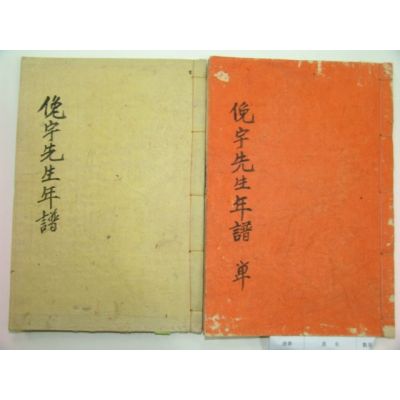 俛宇先生年譜
俛宇先生年譜 單